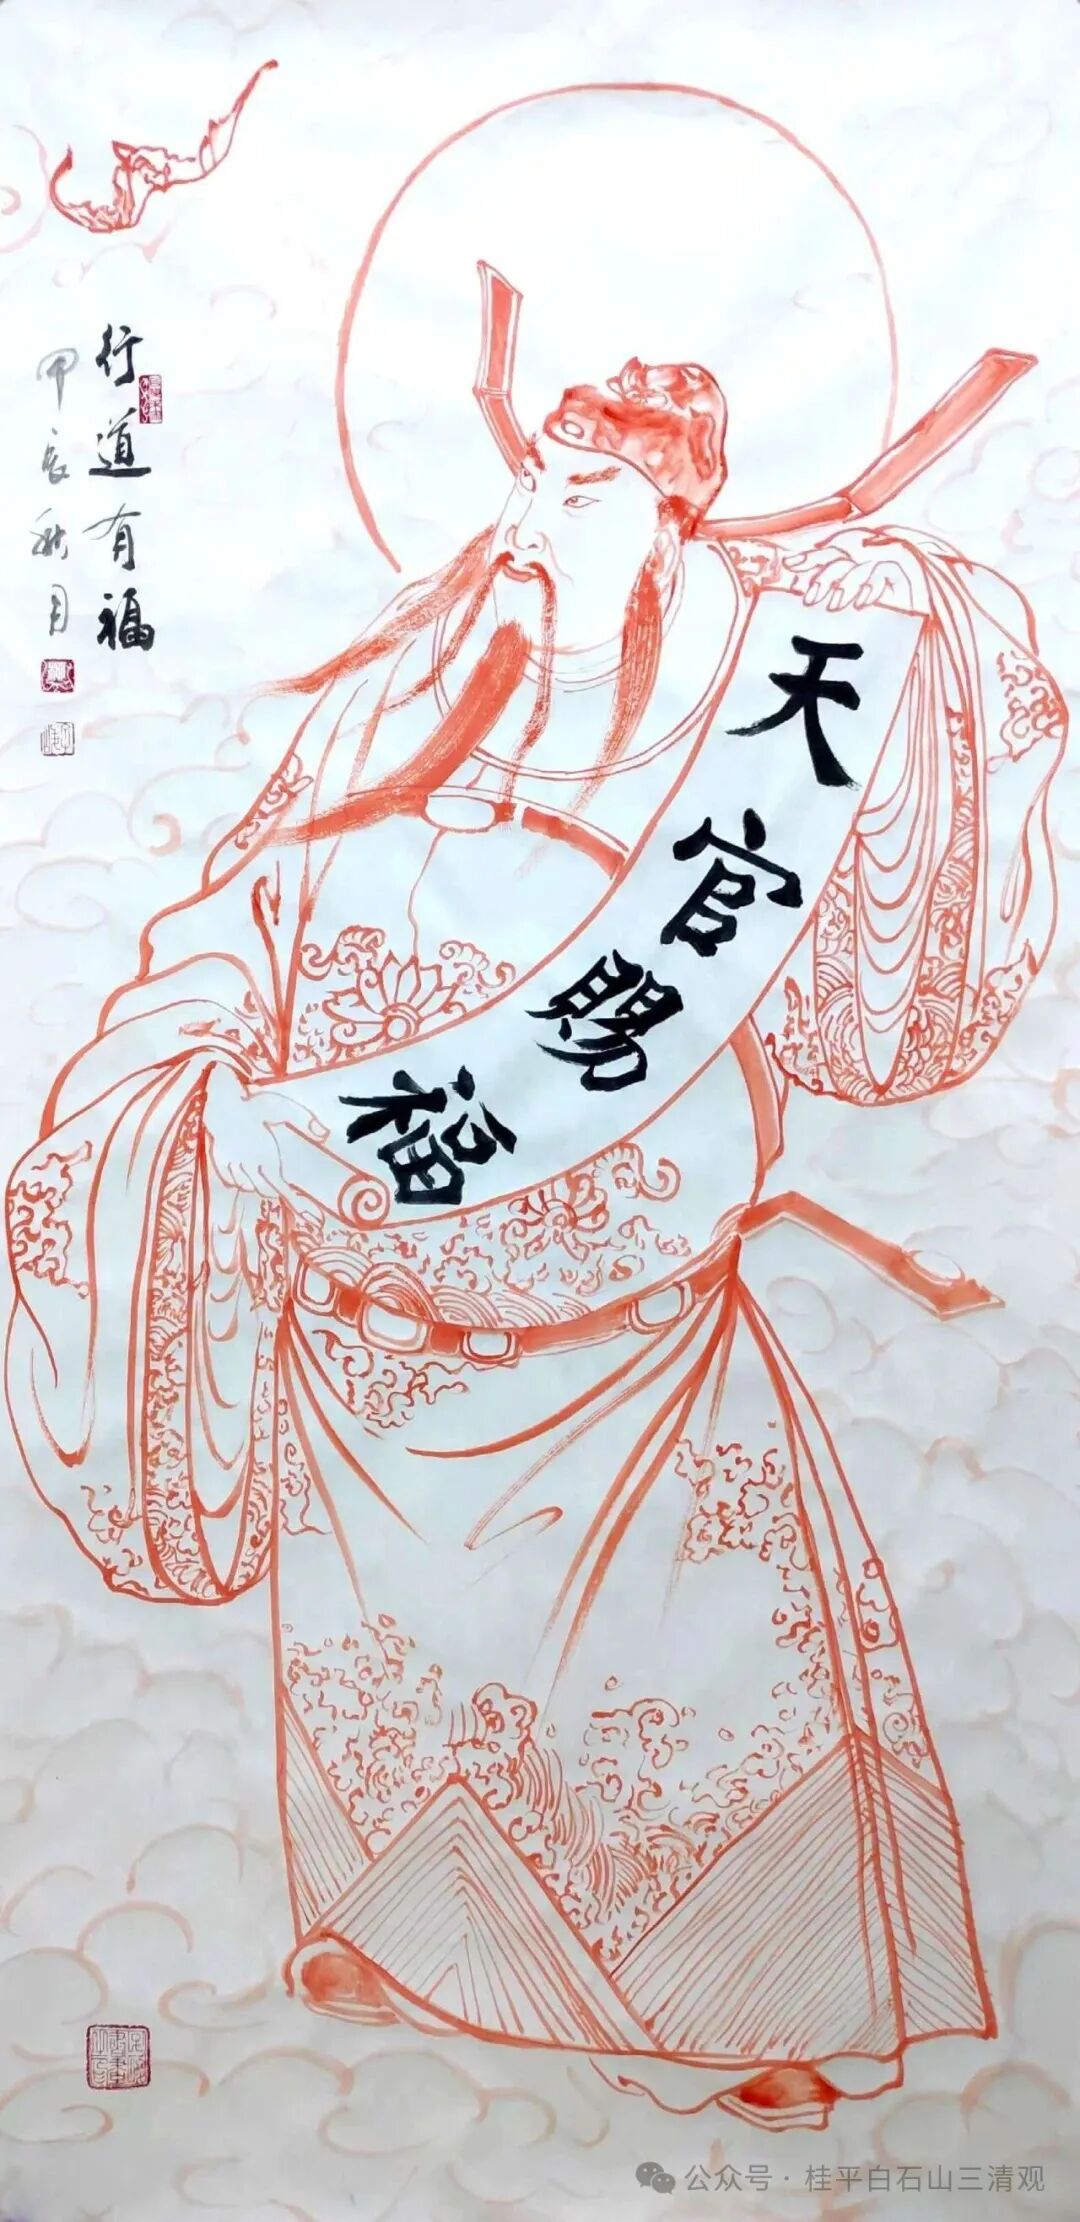 行道有福
甲辰秋月
天官賜福
公众号·桂平白石山三清观